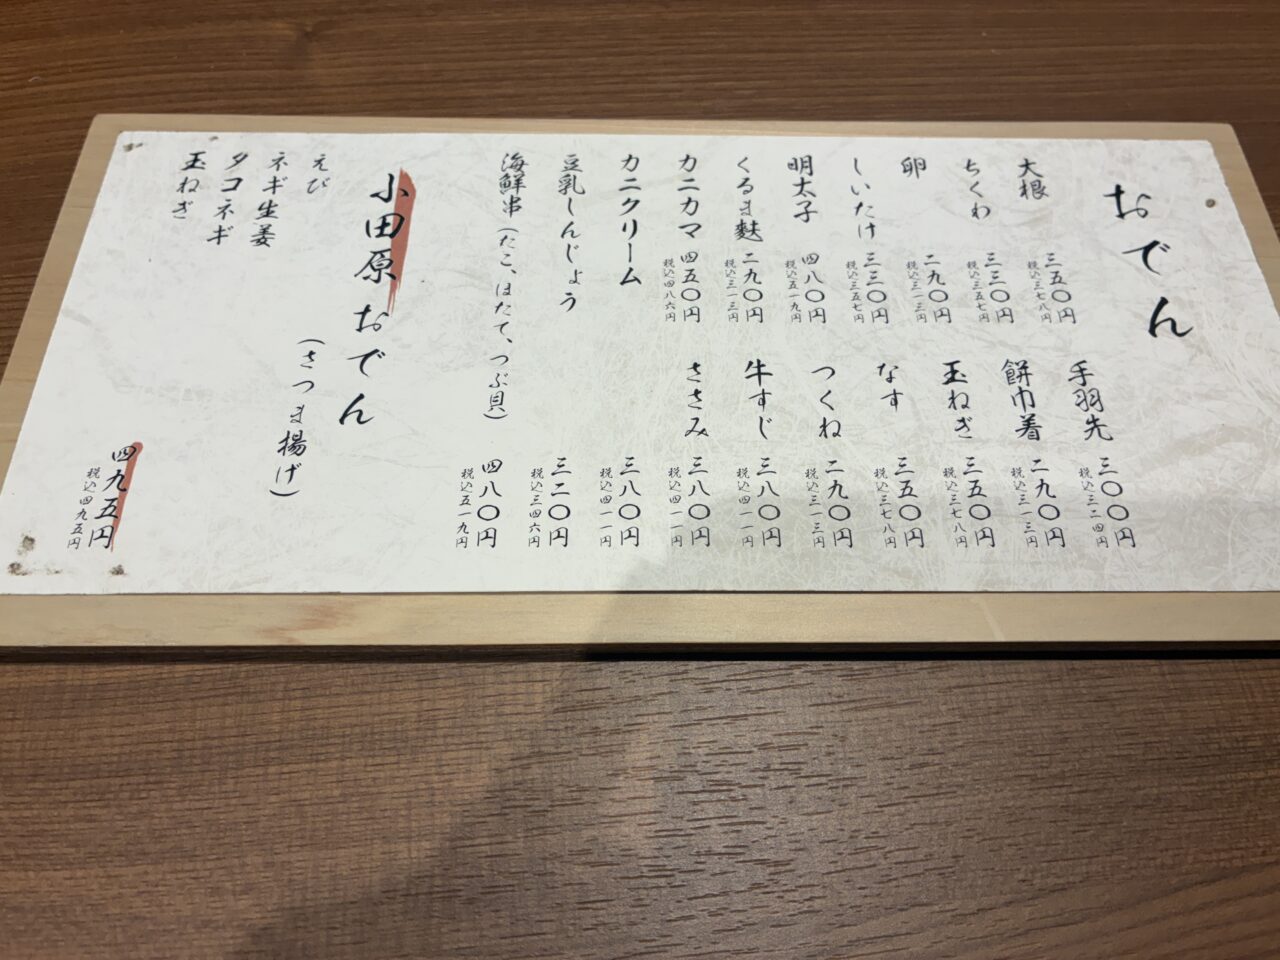 おでん
大根 三五〇円
税込三七八円
ちくわ 三三〇円
税込三五七円
卵 二九〇円
税込三一三円
しいたけ 三三〇円
税込三五七円
明太子 四八〇円
税込五一九円
くるま麩 二九〇円
税込三一三円
カニカマ 四五〇円
税込四八六円
手羽先 三〇〇円
税込三二四円
餅巾着 二九〇円
税込三一三円
玉ねぎ 三五〇円
税込三七八円
なす 三五〇円
税込三七八円
つくね 二九〇円
税込三一三円
牛すじ 三八〇円
税込四一一円
ささみ 三八〇円
税込四一一円
カニクリーム 三八〇円
税込四一一円
豆乳しんじょう 三二〇円
税込三四六円
海鮮串(たこ、ほたて、つぶ貝) 四八〇円
税込五一九円
小田原おでん
(さつま揚げ)
えび
ネギ生姜
タコネギ
玉ねぎ
四九五円
税込四九五円